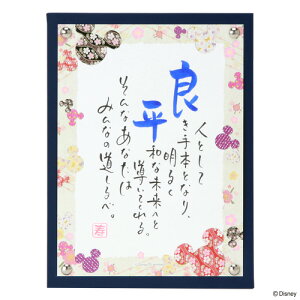 人として
良き手本となり、
明るく
平和な未来へと
導いてくれる。
そんなあなたは
みんなの道しるべ。
© Disney